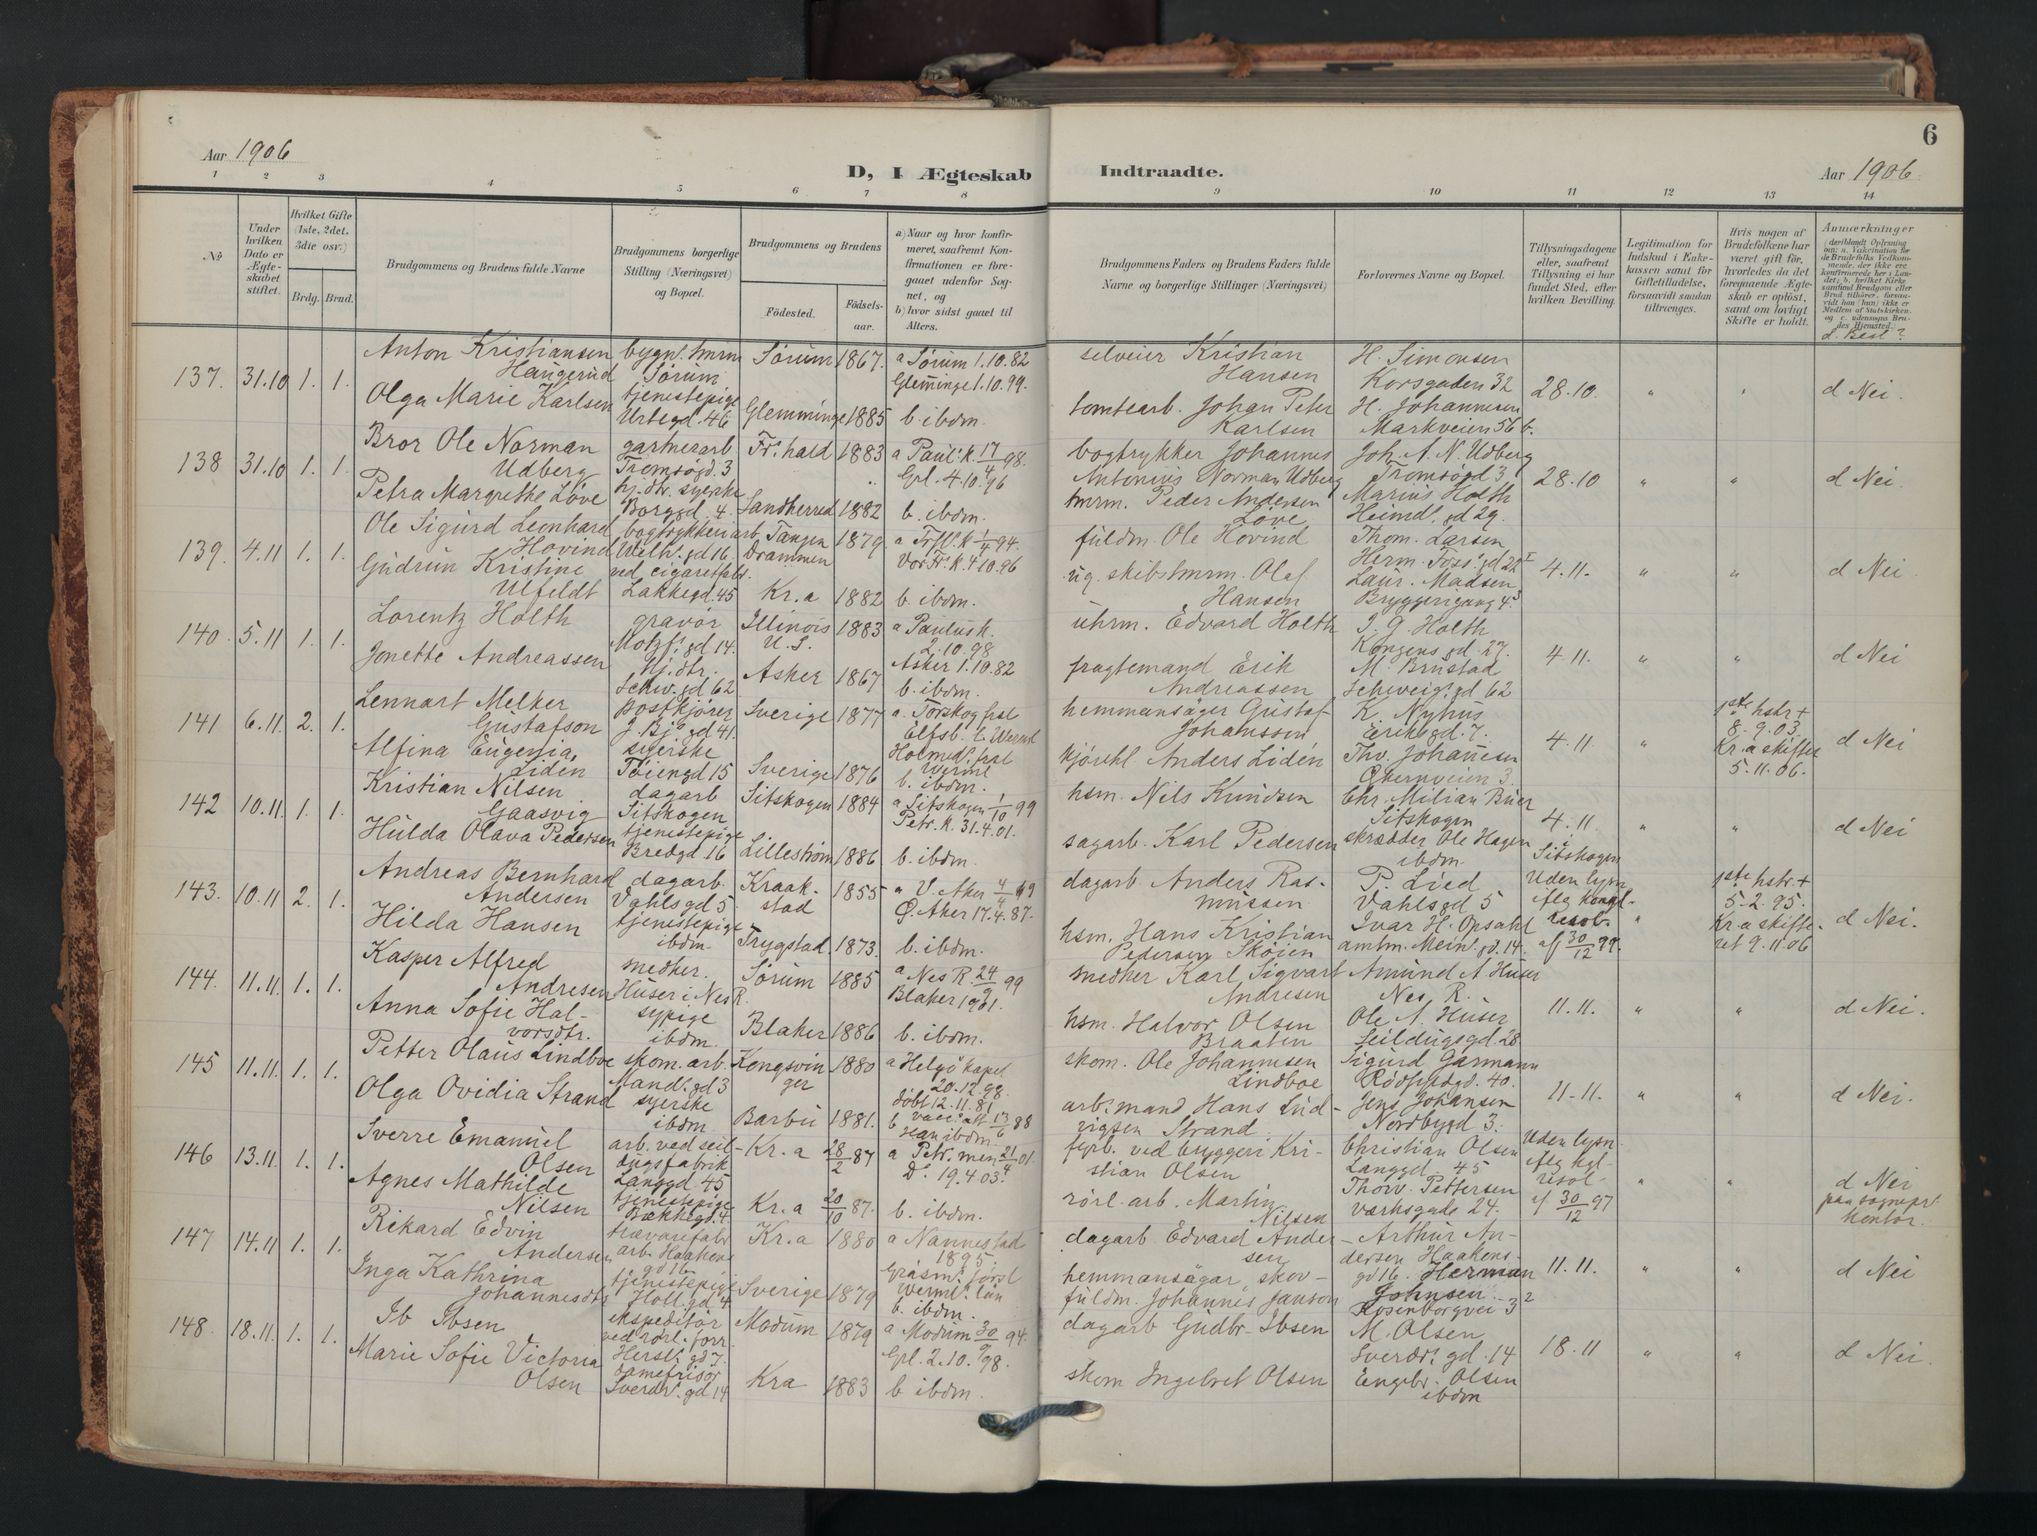 Aar 1906
D, I Ægteskab
Indtraadte.
6
Aar 1906.
1 2 3 4 5 6 7 8 9 10 11 12 13 14
No
Under hvilken Dato er Ægteskabet stiftet.
Hvilket Gifte (1ste, 2det, 3die osv.)
Brdg. Brud.
Brudgommens og Brudens fulde Navne
Brudgommens borgerlige Stilling (Næringsvei) og Bopæl.
Brudgommens og Brudens
Födested.
Födselsaar.
a) Naar og hvor konfirmeret, saafremt Konfirmationen er foregaaet udenfor Sognet, og
b) hvor sidst gaaet til Alters.
Brudgommens Faders og Brudens Faders fulde Navne og borgerlige Stillinger (Næringsvei)
Forlovernes Navne og Bopæl.
Tillysningsdagene eller, saafremt Tillysning ei har fundet Sted, efter hvilken Bevilling.
Legitimation for Indskud i Enkekassen samt for Giftetilladelse, forsaavidt saadan tiltrænges.
Hvis nogen af Brudefolkene har været gift för, hvorledes da det foregaaende Ægteskab er oplöst, samt om lovligt Skifte er holdt.
Anmærkninger
d. Besl?
137. 31.10 1. 1.
Anton Kristiansen
Hangerud
bygn.tmrm
Sørum
Sørum 1867.
a Sørum 1.10.82
Glemminge 1.10.99.
selveier Kristian
Hansen
H. Simonsen
Korsgaden 32
28.10. " " d Nei.
Olga Marie Karlsen
tjenestepige
Urtegd. 46
Glemminge 1885
b. ibdm.
tomtearb. Johan Peter
Karlsen
H. Johannesen
Markveien 56 b.
138 31.10 1. 1.
Bror Ole Norman
Udberg
gartnerarb
Tromsøgd. 3
Fr.hald 1883
a Paul. k 17/4 98.
Gpl. 4.10.96
bogtrykker Johannes
Antonius Norman Udberg
Joh. A. N. Udberg
Tromsøgd 3
28.10 " " d Nei.
Petra Margrethe Løve
hj. dtr. syerske
Borggd. 4.
Sandherred 1882
b. ibdm.
tmrm. Peder Andersen
Løve
Marius Holth
Heimd. gd 29.
139. 4.11 1. 1.
Ole Sigurd Leonhard
Hovind
bogtrykkeriarb.
Wilh. gd 16
Tangen
Drammen
1879.
Vor Fr. k. 4.10.96
fuldm. Ole Hovind
Thom. Larsen
4.11. " " d Nei.
Gudrun Kristine
Ulfeldt
ved cigaretfabr.
Lakkegd. 45
Kr.a 1882
b. ibdm.
ug. skibstmrm. Olaf
Hansen
Laur. Madsen
Bryggerigang 4.
140. 5.11 1. 1.
Lorentz Holth
gravør
Motzf. gd 14.
Illinois
U.S.
1883
a Paulus k.
2.10.98
uhrm. Edvard Holth
J. G. Holth
Kongens gd. 27.
4.11. " " d Nei
Jonette Andreassen
hj. dtr.
Schw. gd 62
Asker 1867
Asker 1.10.82
b. ibdm.
fragtemand Erik
Andreassen
M. Brustad
Schweig. gd 62
141 6.11. 2. 1.
Lennart Melker
Gustafson
Postkjører
G. Bj. gd 41.
Sverige 1877
a. Torskog frsl
Elfsb. l.
hemmansäger Gustaf
Johanssen
K. Nyhus
Eriksgd. 7.
4.11 "
1ste hstr +
8.9.03
Kr.a skifte
5.11.06.
d Nei
Alfina Eugenia
Lidén
syerske
Tøiengd 15
Sverige 1876
Holmed. frsl
Werml
b. ibdm.
Anders Lidén
Thv. Johannesen
142 10.11. 1. 1.
Kristian Nilsen
Gaasvig
dagarb
Sitskogen
Sitskogen 1884
a Sitskogen 1/10 99
Petr. k. 31.4.01.
hsm. Nils Knudsen
Chr. Milian Buer
Sitskogen
4.11
Sitskogen
" " d Nei
Hulda Olava Pedersen
tjenestepige
Bredgd 16
Lillestrøm 1886
b. ibdm.
sagarb. Karl Pedersen
skrædder Ole Hagen
ibdm.
143. 10.11 2. 1.
Andreas Bernhard
Andersen
dagarb.
Vahlsgd 5
Kraakstad
1855
Ø. Aker 17.4.87.
dagarb Anders Rasmussen
P. Lied
Vahlsgd 5
Uden lysn
iflg kongl.
resol.
af 30/12 99.
"
1ste hstr. +
5.2.95.
Kr.a skifteret 9.11.06
d Nei.
Hilda Hansen
tjenestepige
ibdm.
Trygstad 1873.
b. ibdm.
hsm. Hans Kristian
Pedersen Skøien
Ivar H. Opsahl
144. 11.11. 1. 1.
Kasper Alfred
Andresen
smedher.
Huser i Nes R.
Sørum 1885
a Nes R. 24/9 99
Blaker 1901.
smedher Karl Sigvart
Andresen
Amund A Huser
Nes R.
11.11. " " d Nei.
Anna Sofie Halvorsdtr.
sypige
ibdm.
Blaker 1886
b. ibdm.
hsm. Halvor Olsen
Braaten
Ole A. Huser
Seildugsgd. 28
145 11.11. 1. 1.
Petter Olaus Lindboe
skom. arb.
Mand. gd 3
Kongsvinger
1880
a Helgø kapel
20.12.98.
skom. Ole Johannesen
Lindboe
Sigurd Garmann
11.11. " " d Nei.
Olga Ovidia Strand
syerske
ibdm
Barbu 1881.
døbt 12.11.81
b vacc. att 13/6 88
arb.mand Hans Ludvigsen Strand
Jens Johansen
Nordbygd 3.
146 13.11. 1. 1.
Sverre Emanuel
Olsen
arb. ved seildugsfabrik
Langgd 45
Kr.a 28/2 87
a Petr. men 21/4 01.
D. 19.4.03.
fyrb. ved bryggeri Kristian Olsen
Christian Olsen
Langgd. 45
Uden lysn.
iflg kgl.
resol.
af 30/12 97
" "
d Nei
paa sognepr.
kontor.
Agnes Mathilde
Nilsen
tjenestepige
Bækkegd. 4
Kr.a 20/10 87.
b. ibdm.
rørl. arb. Martin
Nilsen
Thorv. Pettersen
Værksgade 24.
147 14.11 1. 1.
Rikard Edvin
Andersen
trævarefabr
arb. Haakens
gd 16
Kr.a 1880
a Nannestad
1895.
dagarb Edvard Andersen
Arthur Andersen Haakensgd 16.
11.11. " " d Nei
Inga Kathrina
Johannesdtr
tjenestepige
Holt. gd 4
Sverige 1879
Gräsm. först
Werml. län
b. ibdm.
hemmansägar, skovfuldm. Johannes Janson
Herman
Johnsen
Rosenborgvei 3
148. 18.11. 1. 1.
Ib Ibsen
ekspeditør
ved rørl. forr.
Hersl. gd 7.
Modum 1879
a Modum 30/9 94.
Gpl. 2.10.98.
dagarb Gudbr. Ibsen
M. Olsen
Sverdr. gd. 14
18.11 " " d Nei.
Marie Sofie Victoria
Olsen
damefrisør
Sverdr. gd 14
Kra 1883
b ibdm.
skom Ingebret Olsen
Engebr. Olsen
ibdm